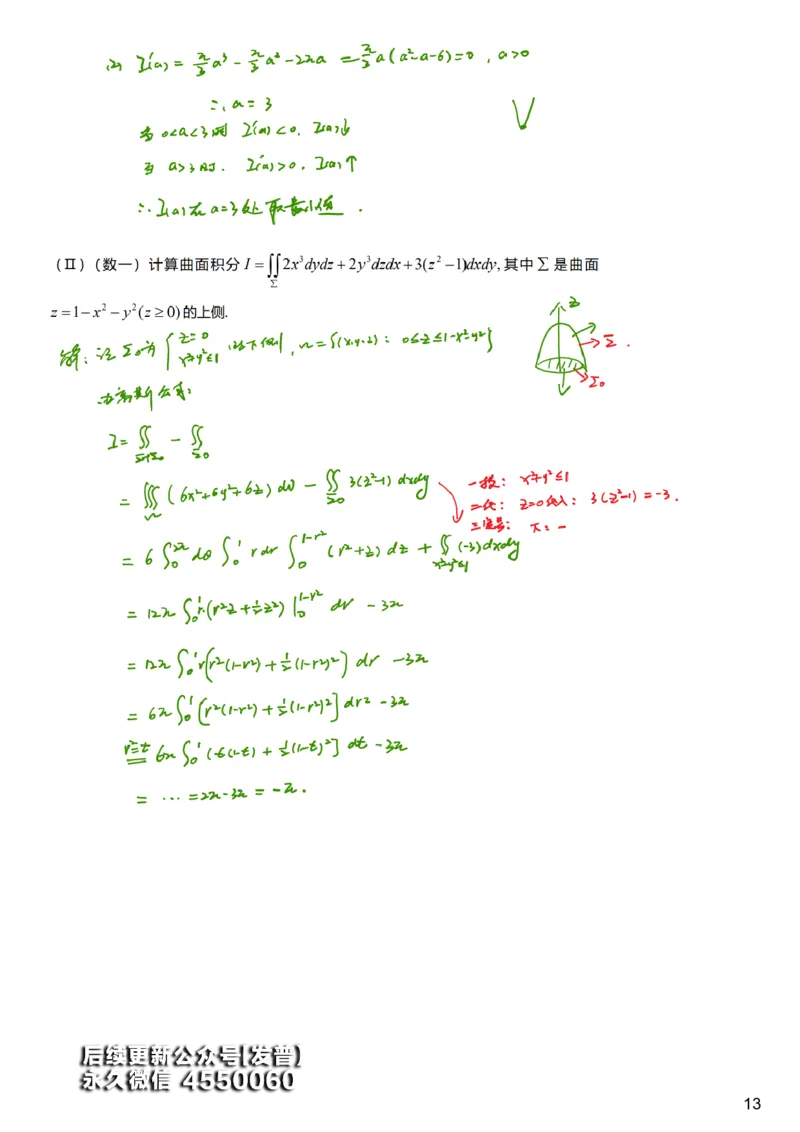 (2) I'(a) = π/3 a³ - π/3 a² - 2πa = π/3 a(a²-a-6) = 0 , a>0
∴ a = 3
当 0<a<3时 I'(a)<0, I(a)↓
当 a>3时, I'(a)>0, I(a)↑
∴ I(a)在a=3处取最小值.
（Ⅱ）（数一）计算曲面积分 I = ∬_Σ 2x³dydz + 2y³dzdx + 3(z² −1)dxdy, 其中 Σ 是曲面
z = 1 − x² − y² (z ≥ 0) 的上侧.
解: 记Σ₀为 { z=0 x²+y²≤1 , 取下侧, Ω={(x,y,z): 0≤z≤1-x²-y²}
z
Σ.
Σ₀
由高斯公式:
I = ∯_{Σ+Σ₀} - ∬_{Σ₀}
= ∭_Ω (6x²+6y²+6z) dv - ∬_{Σ₀} 3(z²-1) dxdy
一投: x²+y²≤1
二代: z=0代入: 3(z²-1) = -3.
三定号: 下: -
= 6∫₀^{2π} dθ ∫₀¹ r dr ∫₀^{1-r²} (r²+z) dz + ∬_{x²+y²≤1} (-3)dxdy
= 12π ∫₀¹ r·(r²z + ½z²) |₀^{1-r²} dr - 3π
= 12π ∫₀¹ r[r²(1-r²) + ½(1-r²)²] dr - 3π
= 6π ∫₀¹ [r²(1-r²) + ½(1-r²)²] dr² - 3π
r²=t = 6π ∫₀¹ [t(1-t) + ½(1-t)²] dt - 3π
= ⋯ = 2π-3π = -π.
后续更新公众号[发普]
永久微信 4550060
13